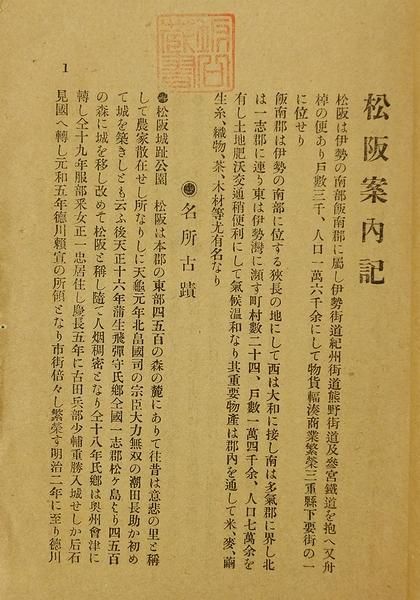 松阪案内記
松阪は伊勢の南部飯南郡に屬し伊勢街道紀州街道熊野街道及參宮鐵道を抱へ又舟
棹の便あり戸數三千、人口一萬六千余にして物貨輻湊商業繁榮三重縣下要街の一
に位せり
飯南郡は伊勢の南部に位する狹長の地にして西は大和に接し南は多氣郡に界し北
は一志郡に連り東は伊勢灣に瀕す町村數二十四、戸數一萬四千余、人口七萬余を
有し土地肥沃交通稍便利にして氣候溫和なり其重要物産は郡內を通して米、麥、繭
生糸、織物、茶、木材等尤有名なり
名所古蹟
松阪城趾公園 松阪は本郡の東部四五百の森の麓にありて往昔は意悲の里と稱
して農家散在せし所なりしに天龜元年北畠國司の宗臣大力無双の潮田長助か初め
て城を築きしとも云ふ後天正十六年蒲生飛彈守氏鄉仝國一志郡松ヶ島より四五百
の森に城を移し改めて松阪と稱し隨て人烟稠密となり仝十八年氏鄉は奥州會津に
轉し仝十九年服部釆女正一忠居住し慶長五年に古田兵部少輔重勝入城せしか后石
見國へ轉し元和五年德川賴宣の所領となり市街倍々し繁榮す明治二年に至り德川
1